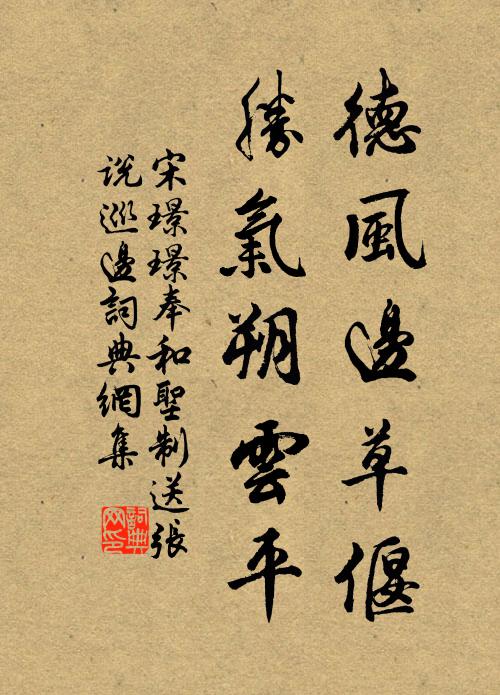 德風邊草偃
勝氣朔雲平
宋璟璟奉和聖制送張
説巡邊詞典網集
詞典
网印